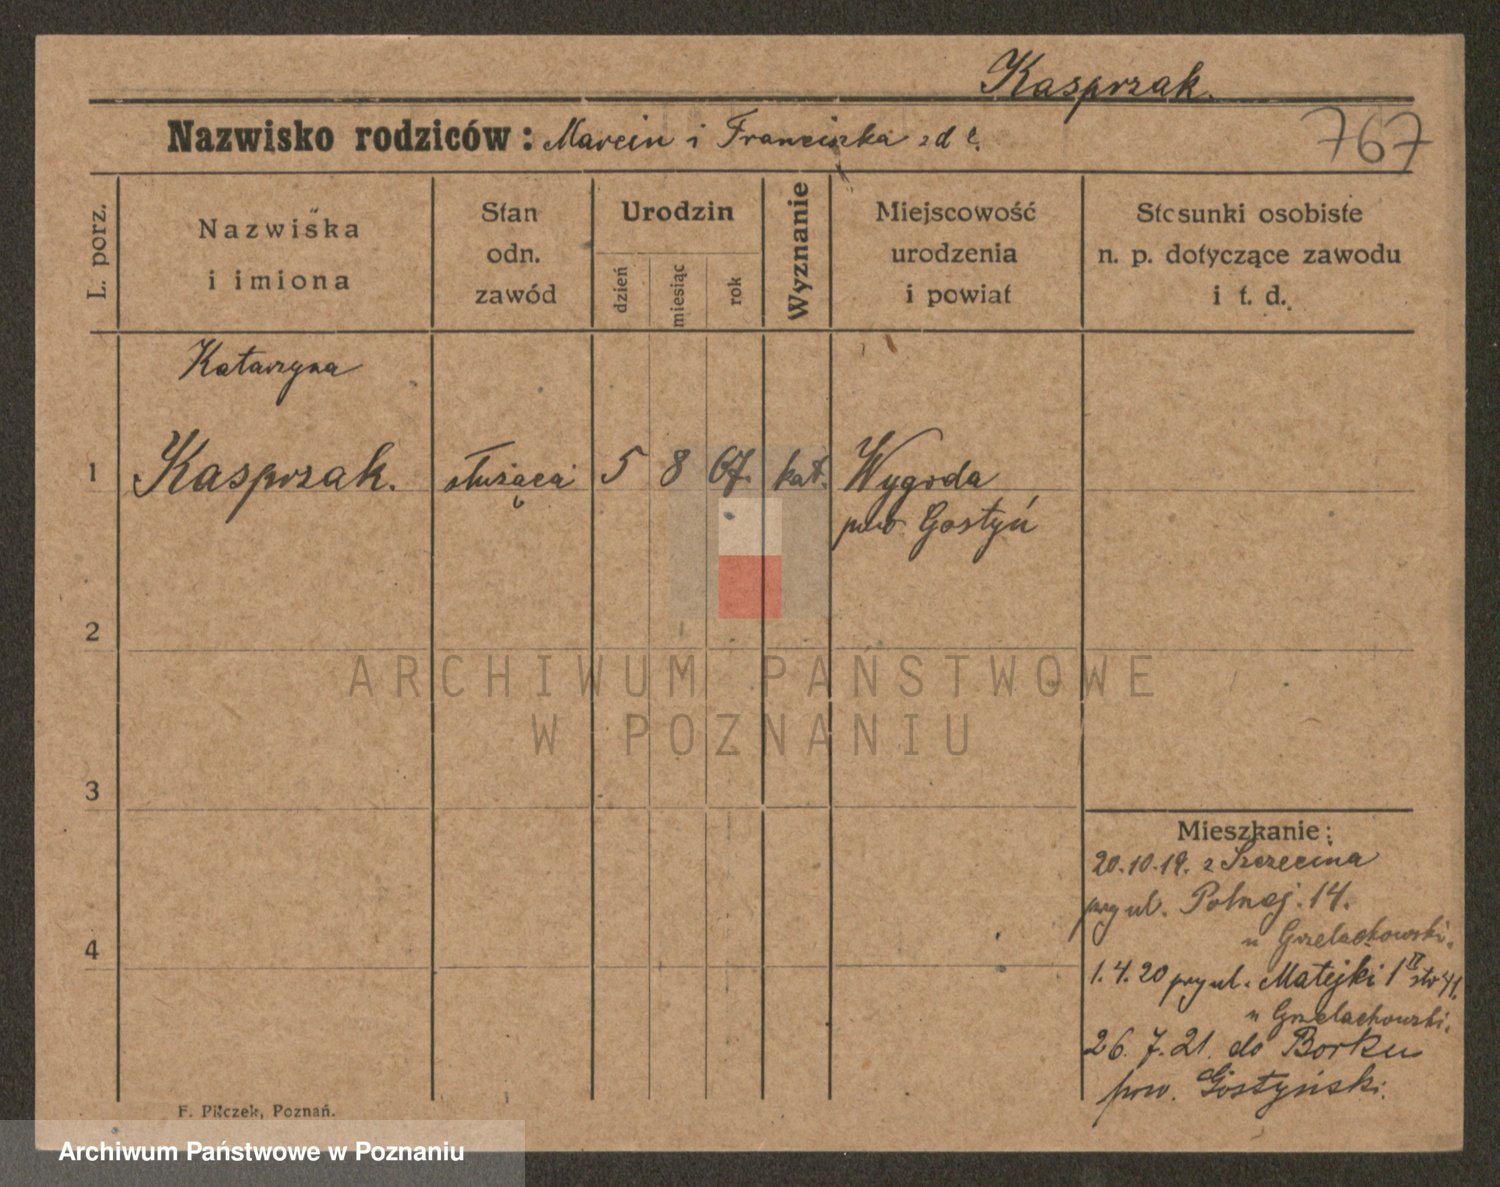 Kasprzak.
767
Nazwisko rodziców: Marcin i Franciszka
L. porz.
Nazwiska
i imiona
Stan
odn.
zawód
Urodzin
dzień
miesiąc
rok
Wyznanie
Miejscowość
urodzenia
i powiat
Stosunki osobiste
n. p. dotyczące zawodu
i t. d.
Katarzyna
1 Kasprzak. służąca 5 8 67. kat. Wygoda
pow Gostyń
2
ARCHIWUM PAŃSTWOWE
W POZNANIU
3
Mieszkanie:
20.10.19. z Szczecina
przy ul. Polnej. 14.
u Grzelachowski.
4
1.4.20 przy ul. Matejki 1 II
u Grzelachowski.
26.7.21. do Borku
pow. Gostyński.
F. Pilczek, Poznań.
Archiwum Państwowe w Poznaniu